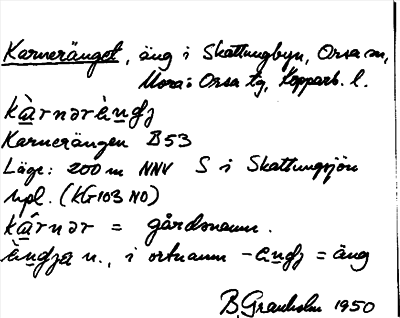 Karneränget, äng i Skattungbyn, Orsa sn,
Mora o Orsa tg, Kopparb. l.
kàrnərèŋʤ
Karnerängen B53
Läge: 200 m NNV S i Skattungsjön
upl. (KG103 NO)
kârnər = gårdsnamn.
n., i ortnamn = äng
B. Granholm 1950